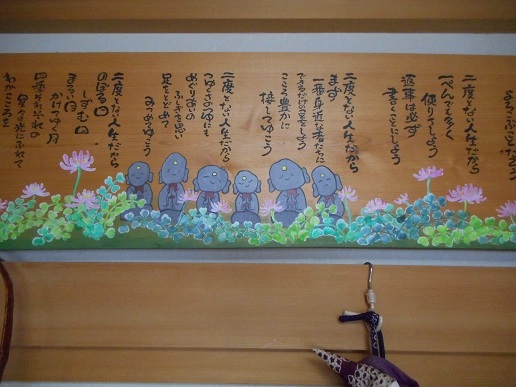 よろこぶことだろう
二度とない人生だから
一ぺんでも多く
便りをしよう
返事は必ず
書くことにしよう
二度とない人生だから
まず
一番身近な者たちに
できるだけのことをしよう
こころ豊かに
接してゆこう
二度とない人生だから
つゆくさのつゆにも
めぐりあいの
ふしぎを思い
足をとどめて
みつめてゆこう
二度とない人生だから
のぼる日
しずむ日
まるい月
かけてゆく月
四季それぞれの
星々の光にふれて
わがこころを